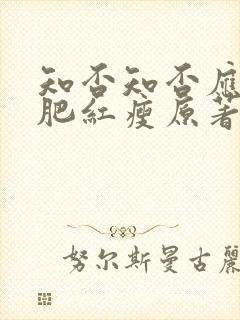 知否知否應
肥紅瘦原著
努尔斯曼古麗